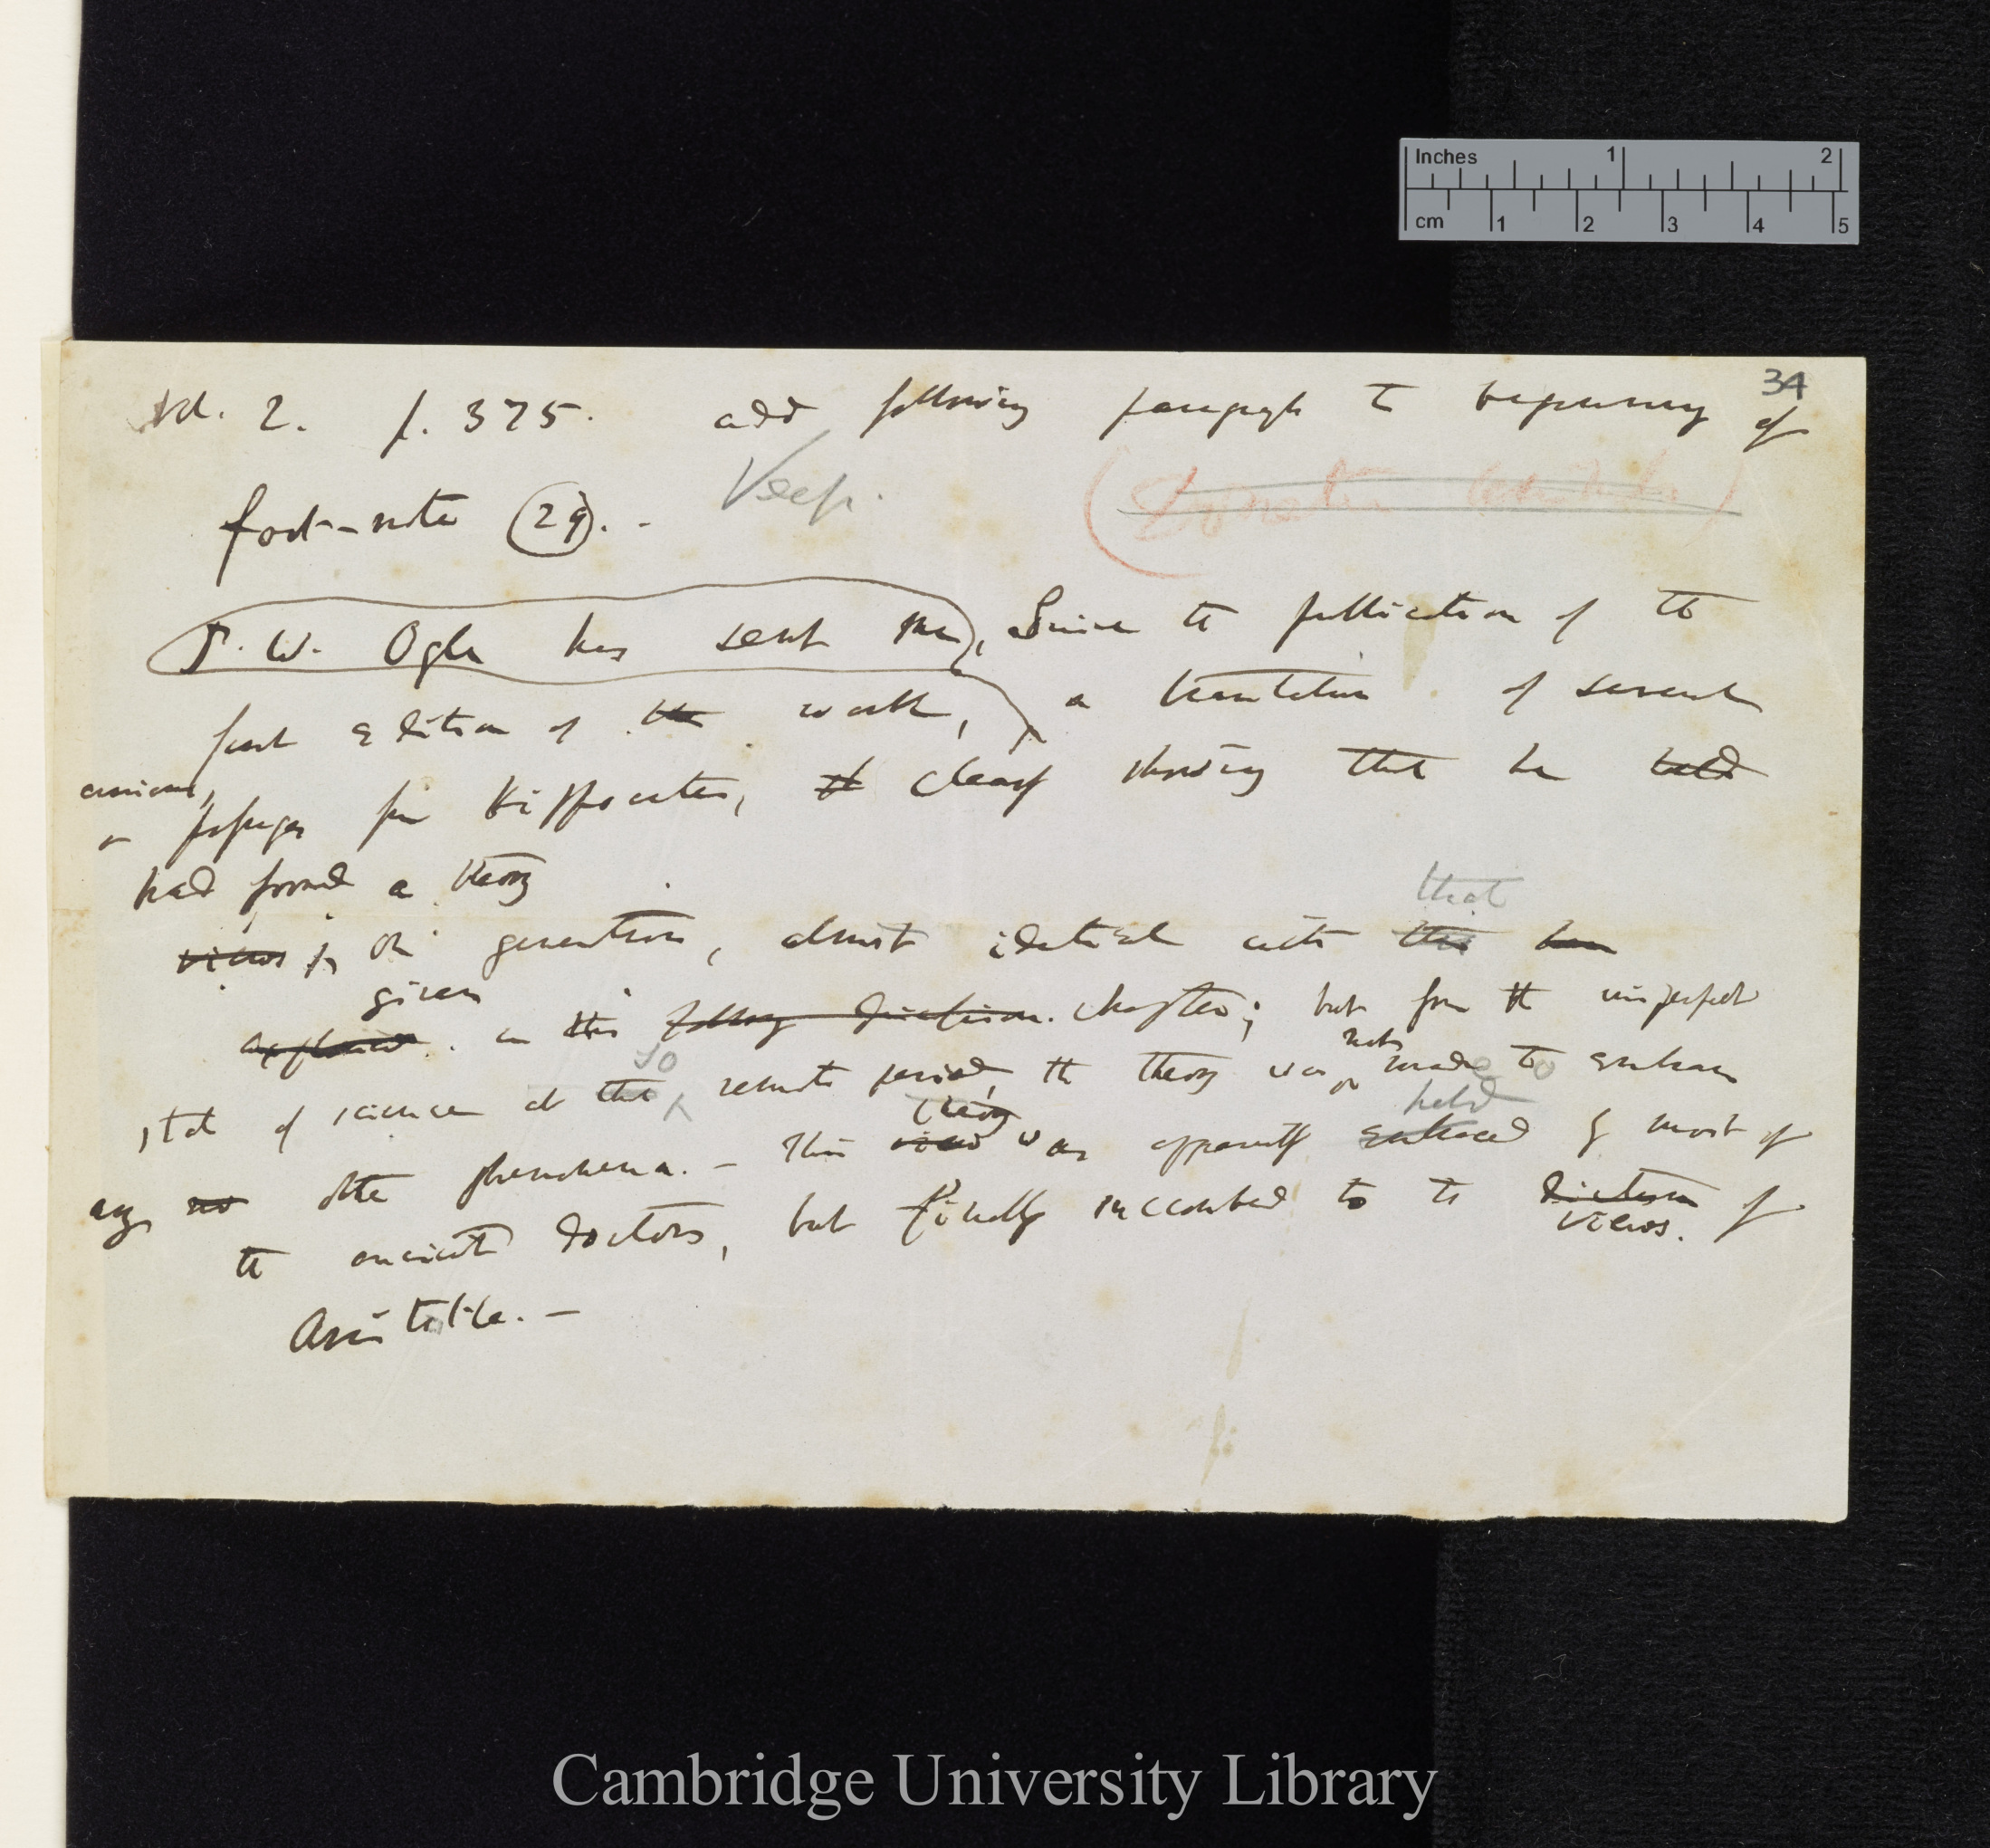 34
Vol. 2. p. 375. add following paragraph to beginning of
foot-note (29). - Keep.
J. W. Ogle has sent me, Since the publication of the
first edition of the work, a translation of several
curious
passages from Hippocrates, clearly showing that he held
had formed a theory
views on generation, almost identical with this that
given
explained in this following discussion. chapter; but from the imperfect
state of science at that so remote period, the theory was not made to embrace
any no other phenomena. - This view theory was apparently embraced held by most of
the ancient doctors, but finally succumbed to the views of
Aristotle. -
Inches 1 2
cm 1 2 3 4 5
Cambridge University Library